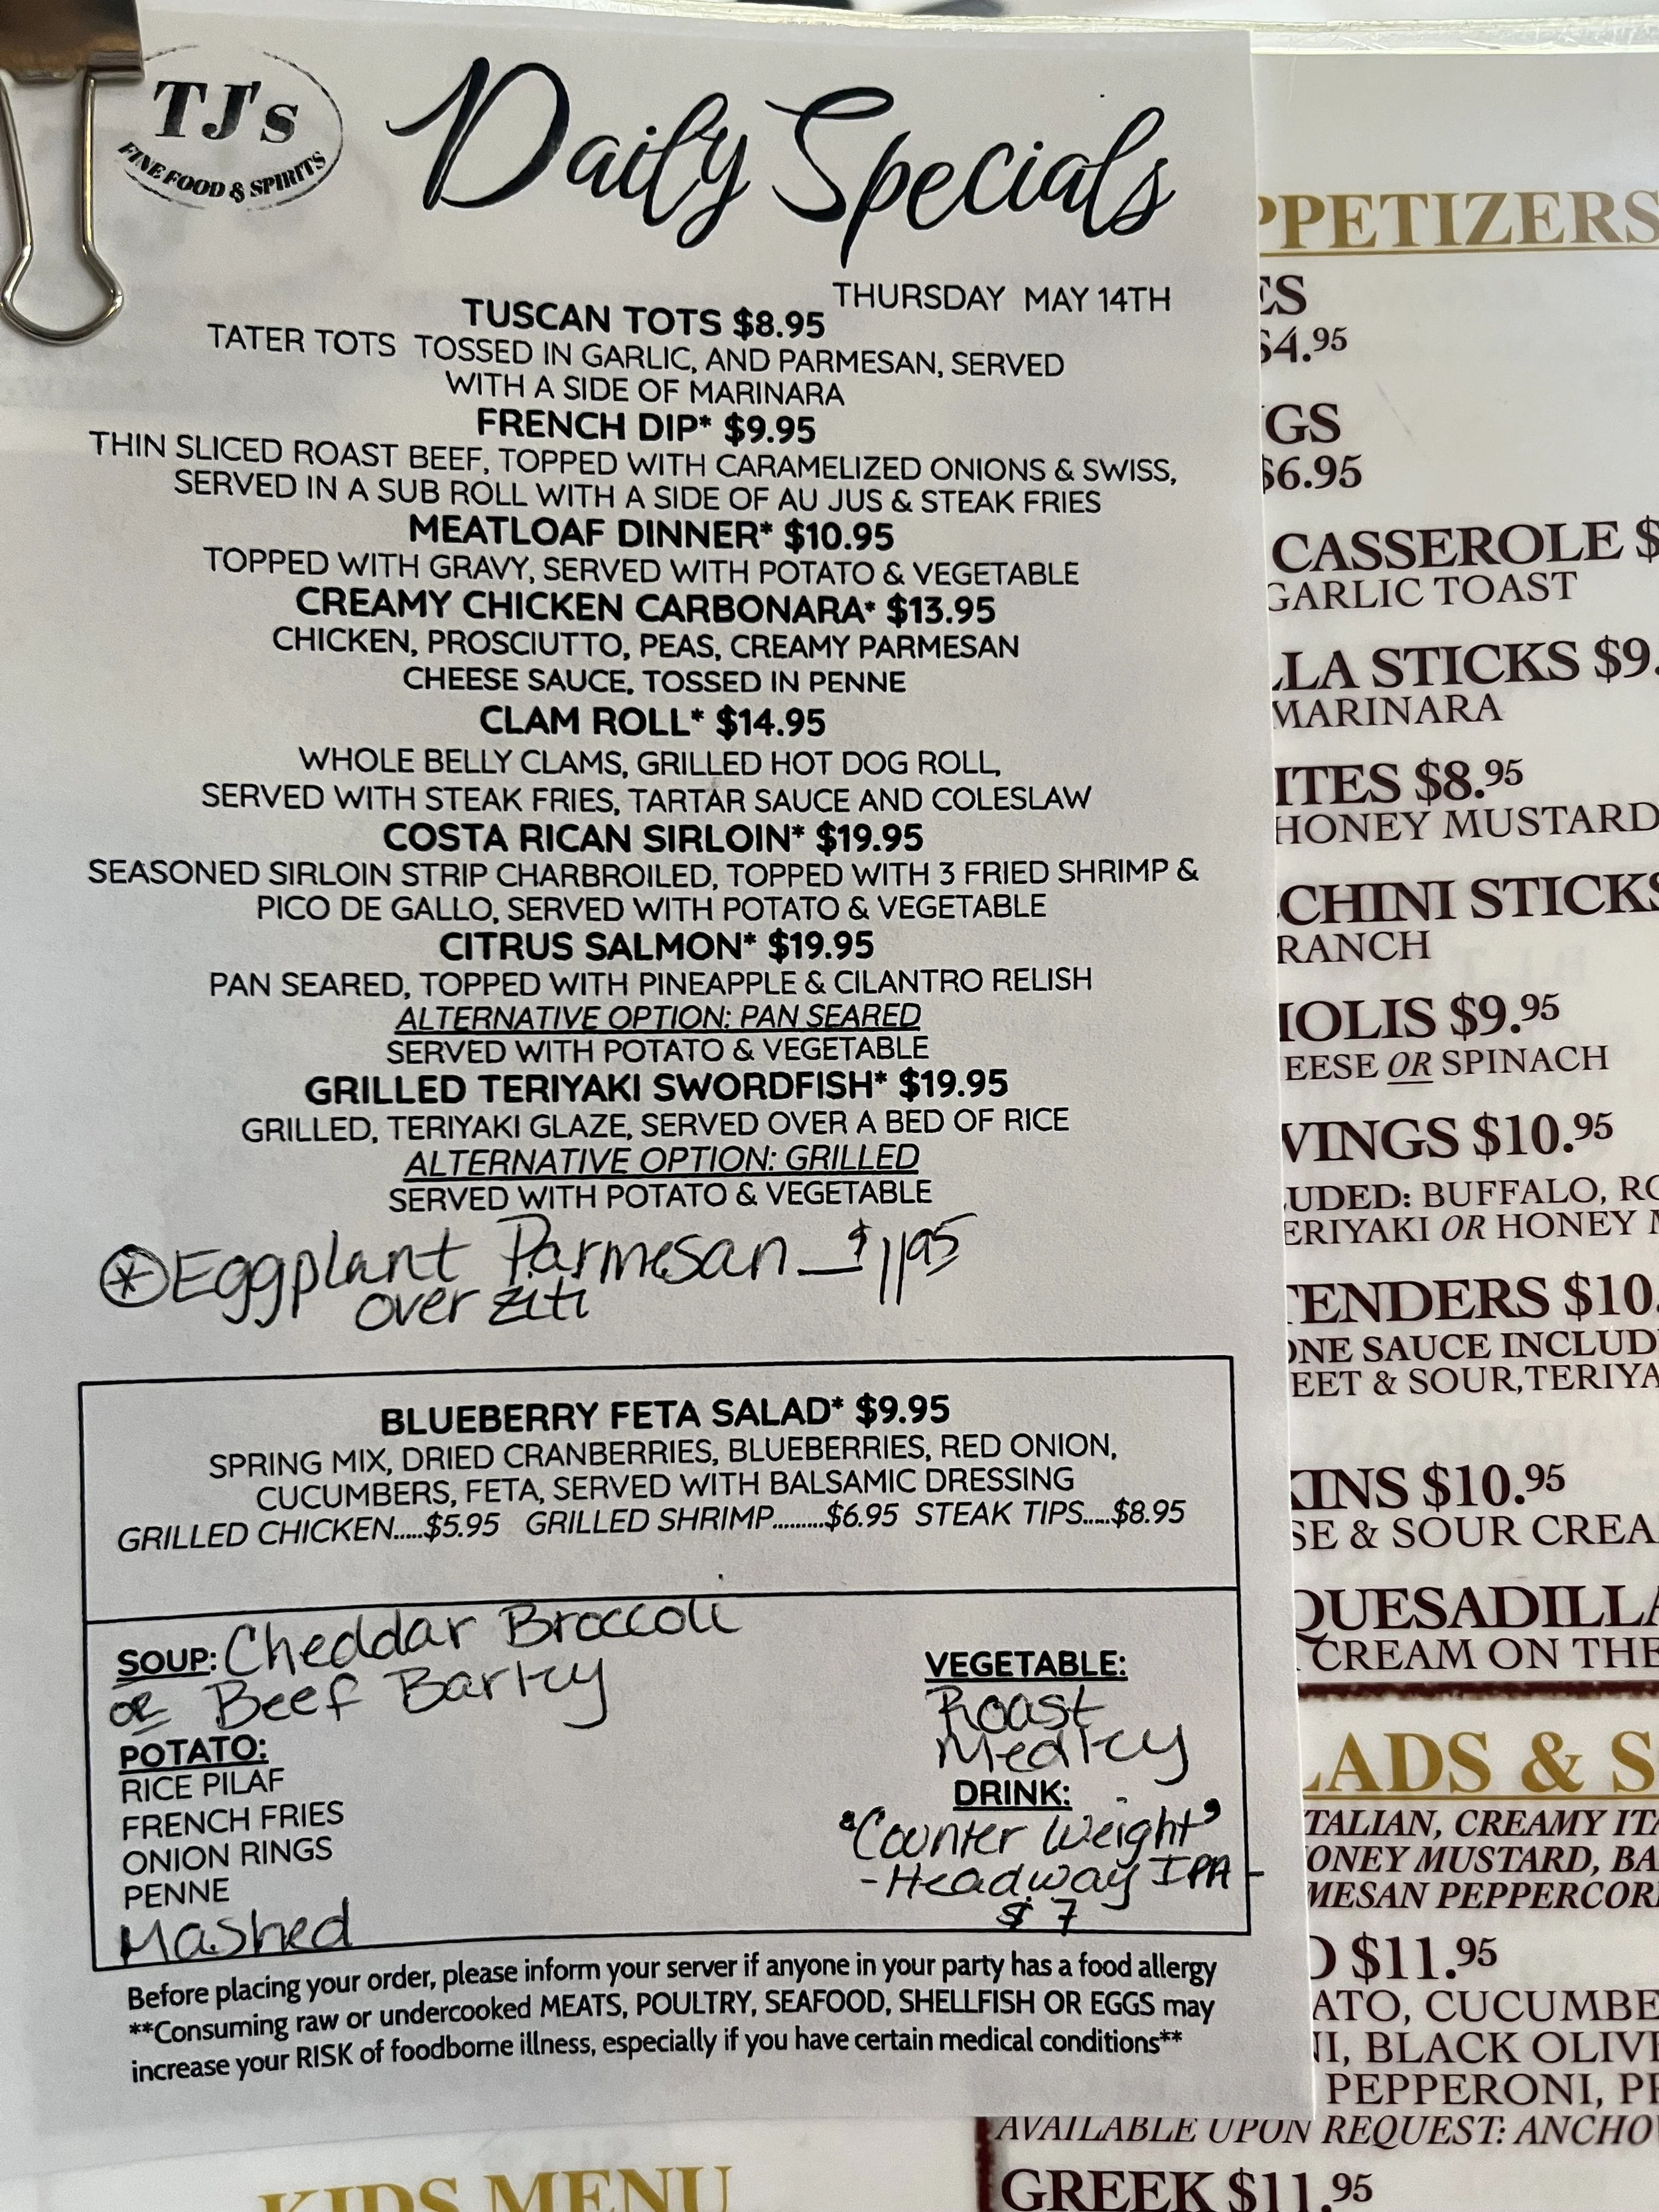 TJ's
FINE FOOD & SPIRITS
Daily Specials
THURSDAY MAY 14TH
TUSCAN TOTS $8.95
TATER TOTS TOSSED IN GARLIC, AND PARMESAN, SERVED
WITH A SIDE OF MARINARA
FRENCH DIP* $9.95
THIN SLICED ROAST BEEF, TOPPED WITH CARAMELIZED ONIONS & SWISS,
SERVED IN A SUB ROLL WITH A SIDE OF AU JUS & STEAK FRIES
MEATLOAF DINNER* $10.95
TOPPED WITH GRAVY, SERVED WITH POTATO & VEGETABLE
CREAMY CHICKEN CARBONARA* $13.95
CHICKEN, PROSCIUTTO, PEAS, CREAMY PARMESAN
CHEESE SAUCE, TOSSED IN PENNE
CLAM ROLL* $14.95
WHOLE BELLY CLAMS, GRILLED HOT DOG ROLL,
SERVED WITH STEAK FRIES, TARTAR SAUCE AND COLESLAW
COSTA RICAN SIRLOIN* $19.95
SEASONED SIRLOIN STRIP CHARBROILED, TOPPED WITH 3 FRIED SHRIMP &
PICO DE GALLO, SERVED WITH POTATO & VEGETABLE
CITRUS SALMON* $19.95
PAN SEARED, TOPPED WITH PINEAPPLE & CILANTRO RELISH
ALTERNATIVE OPTION: PAN SEARED
SERVED WITH POTATO & VEGETABLE
GRILLED TERIYAKI SWORDFISH* $19.95
GRILLED, TERIYAKI GLAZE, SERVED OVER A BED OF RICE
ALTERNATIVE OPTION: GRILLED
SERVED WITH POTATO & VEGETABLE
* Eggplant Parmesan - $11.95
over ziti
BLUEBERRY FETA SALAD* $9.95
SPRING MIX, DRIED CRANBERRIES, BLUEBERRIES, RED ONION,
CUCUMBERS, FETA, SERVED WITH BALSAMIC DRESSING
GRILLED CHICKEN.....$5.95 GRILLED SHRIMP.........$6.95 STEAK TIPS.....$8.95
SOUP: Cheddar Broccoli
or Beef Barley
POTATO:
RICE PILAF
FRENCH FRIES
ONION RINGS
PENNE
Mashed
VEGETABLE:
Roast
Medley
DRINK:
"Counter Weight"
-Headway IPA-
$7
Before placing your order, please inform your server if anyone in your party has a food allergy
**Consuming raw or undercooked MEATS, POULTRY, SEAFOOD, SHELLFISH OR EGGS may
increase your RISK of foodborne illness, especially if you have certain medical conditions**
PPETIZERS
ES
$4.95
GS
$6.95
CASSEROLE $
GARLIC TOAST
LLA STICKS $9.
MARINARA
ITES $8.95
HONEY MUSTARD
CHINI STICKS
RANCH
IOLIS $9.95
EESE OR SPINACH
VINGS $10.95
UDED: BUFFALO, RO
ERIYAKI OR HONEY M
TENDERS $10.
ONE SAUCE INCLUD
EET & SOUR, TERIYA
KINS $10.95
SE & SOUR CREA
QUESADILLA
CREAM ON THE
LADS & S
TALIAN, CREAMY ITA
ONEY MUSTARD, BA
MESAN PEPPERCOR
D $11.95
ATO, CUCUMBE
NI, BLACK OLIVE
PEPPERONI, PR
AVAILABLE UPON REQUEST: ANCHO
GREEK $11.95
KIDS MENU